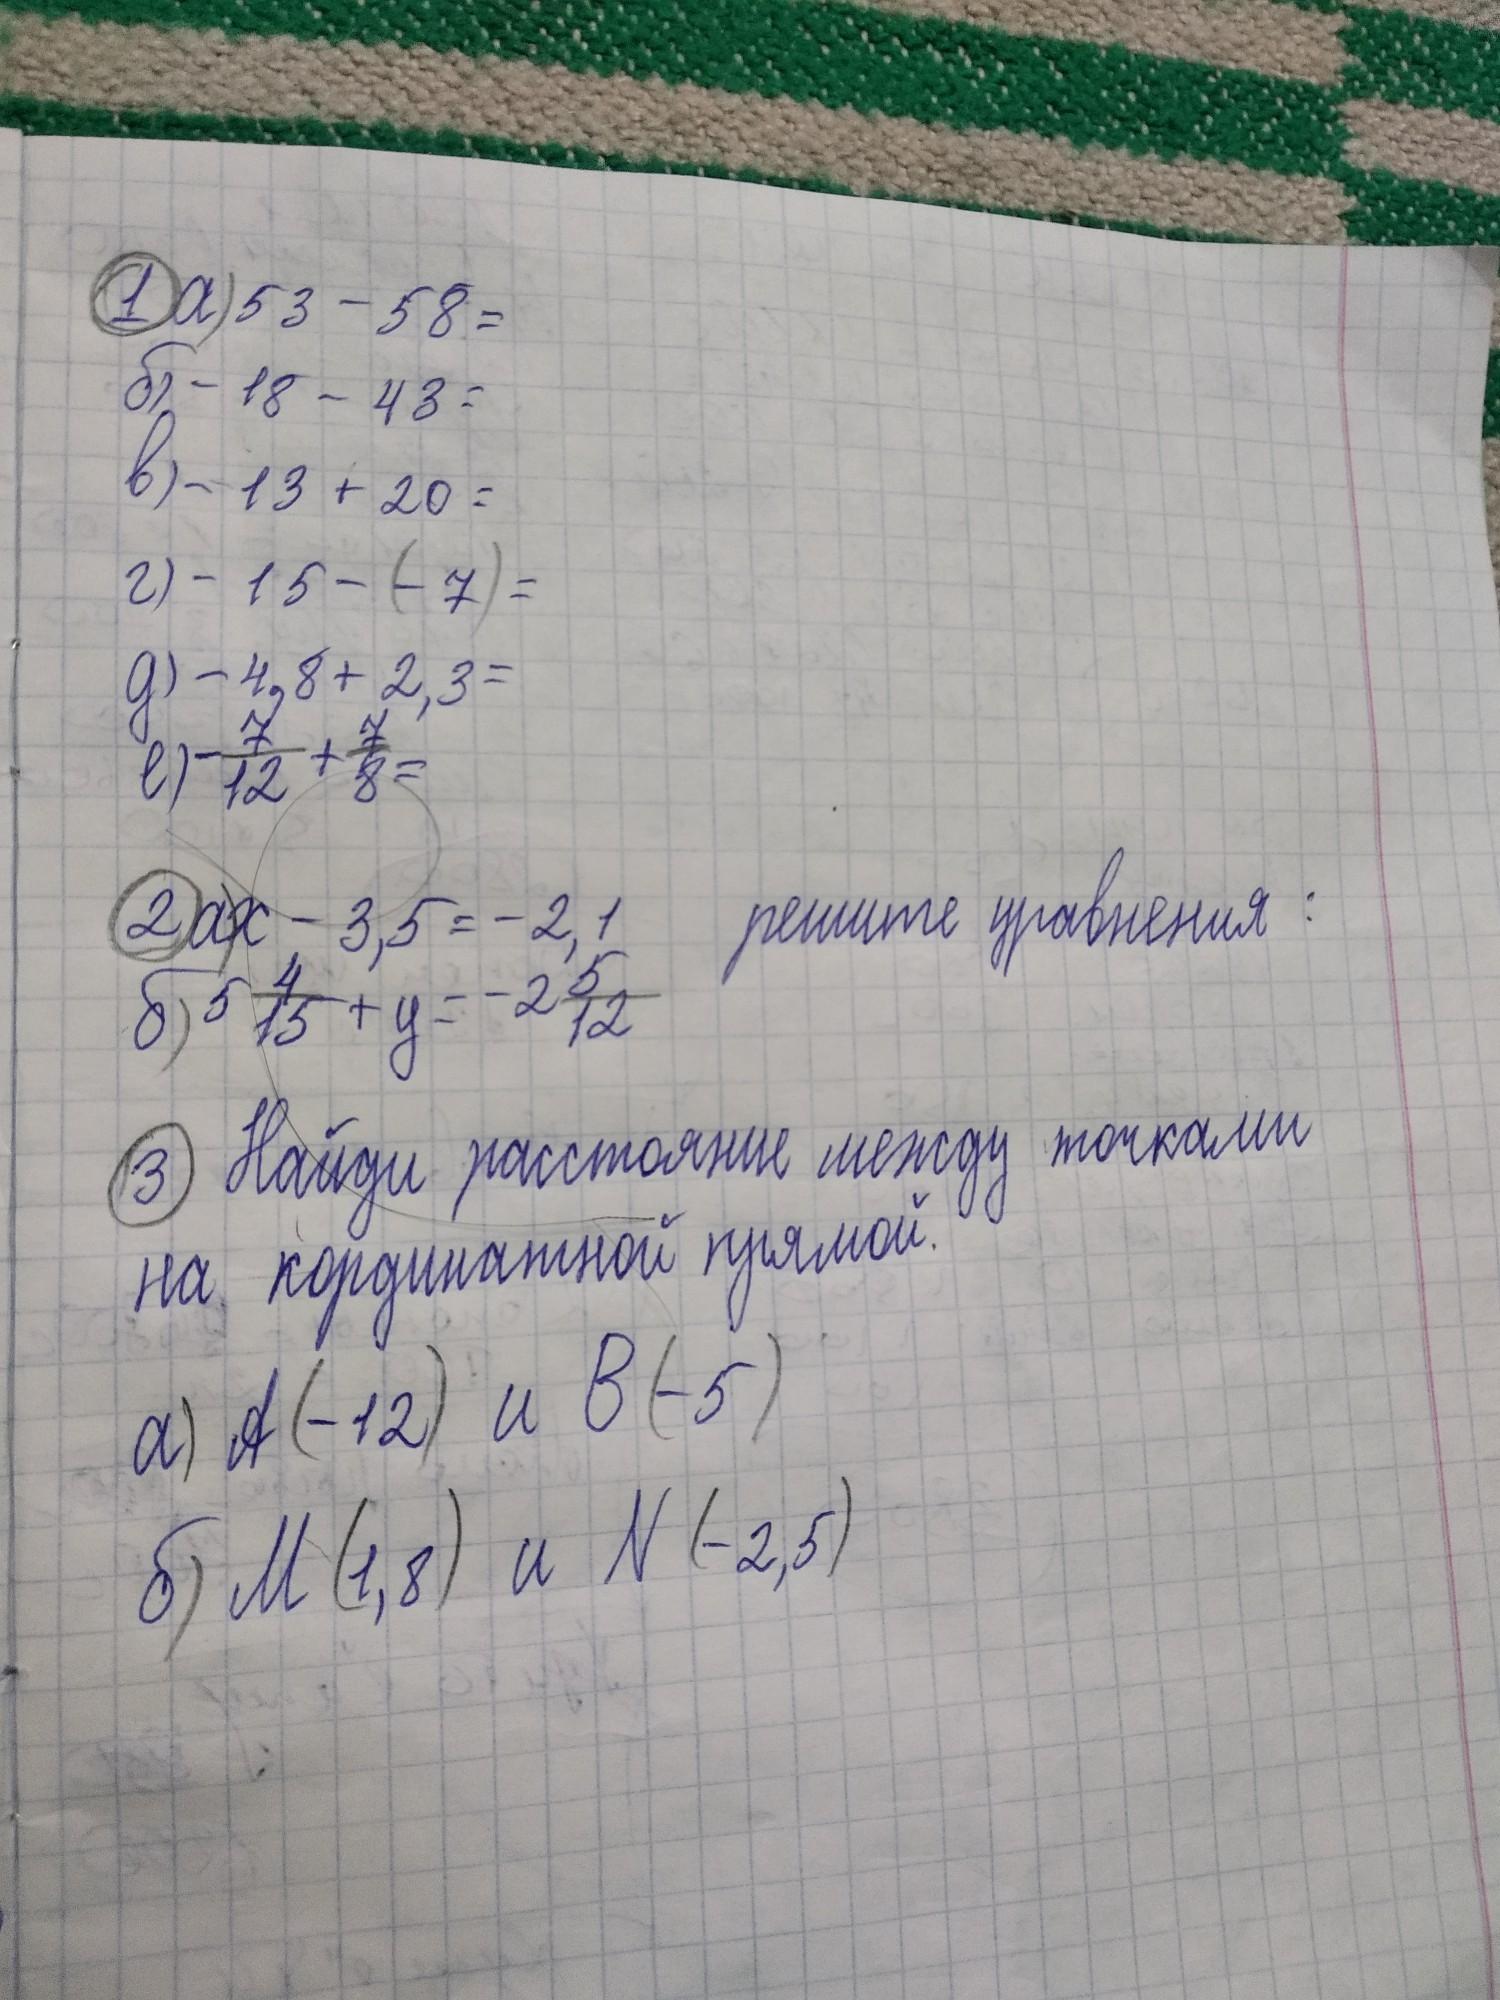 1 а) 53 - 58 =
б) - 18 - 43 =
в) - 13 + 20 =
г) - 15 - (- 7) =
д) - 4,8 + 2,3 =
е) - 7/12 + 7/8 =
2 а) x - 3,5 = - 2,1 решите уравнения :
б) 5 4/15 + y = - 2 5/12
3 Найди расстояние между точками
на кординатной прямой.
а) A (- 12) и B (- 5)
б) M (1,8) и N (- 2,5)